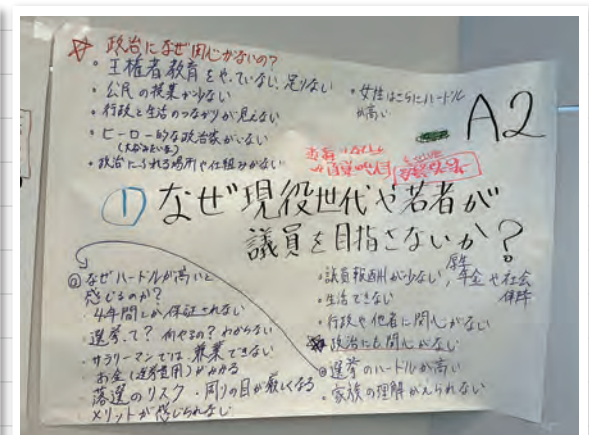 ☆ 政治になぜ関心がないの?
・主権者教育をやっていない、足りない
・公民の授業が少ない
・行政と生活のつながりが見えない
・ヒーロー的な政治家がいない
・政治にふれる場所や仕組みがない
・女性はさらにハードル
が高い
A2
① なぜ現役世代や若者が
議員を目指さないか?
◎なぜハードルが高いと
感じるのか?
・4年間しか保証されない
・選挙って?何やるの?わからない
・サラリーマンでは兼業できない
・お金(選挙費用)がかかる
・落選のリスク・周りの目が厳しくなる
・メリットが感じられない
・議員報酬が少ない,厚生年金や社会保障
・生活できない
・行政や他者に関心がない
☆政治にも関心がない
◎選挙のハードルが高い
・家族の理解がえられない